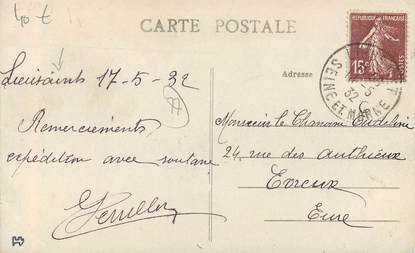 40 €
CARTE POSTALE
REPUBLIQUE FRANÇAISE
15c
POSTES
SEINE ET MARNE
32
Adresse
Lieusaint 17-5-32
Remerciements
expédition avec soutane
Monsieur le Chanoine
24, rue des
Evreux
Eure